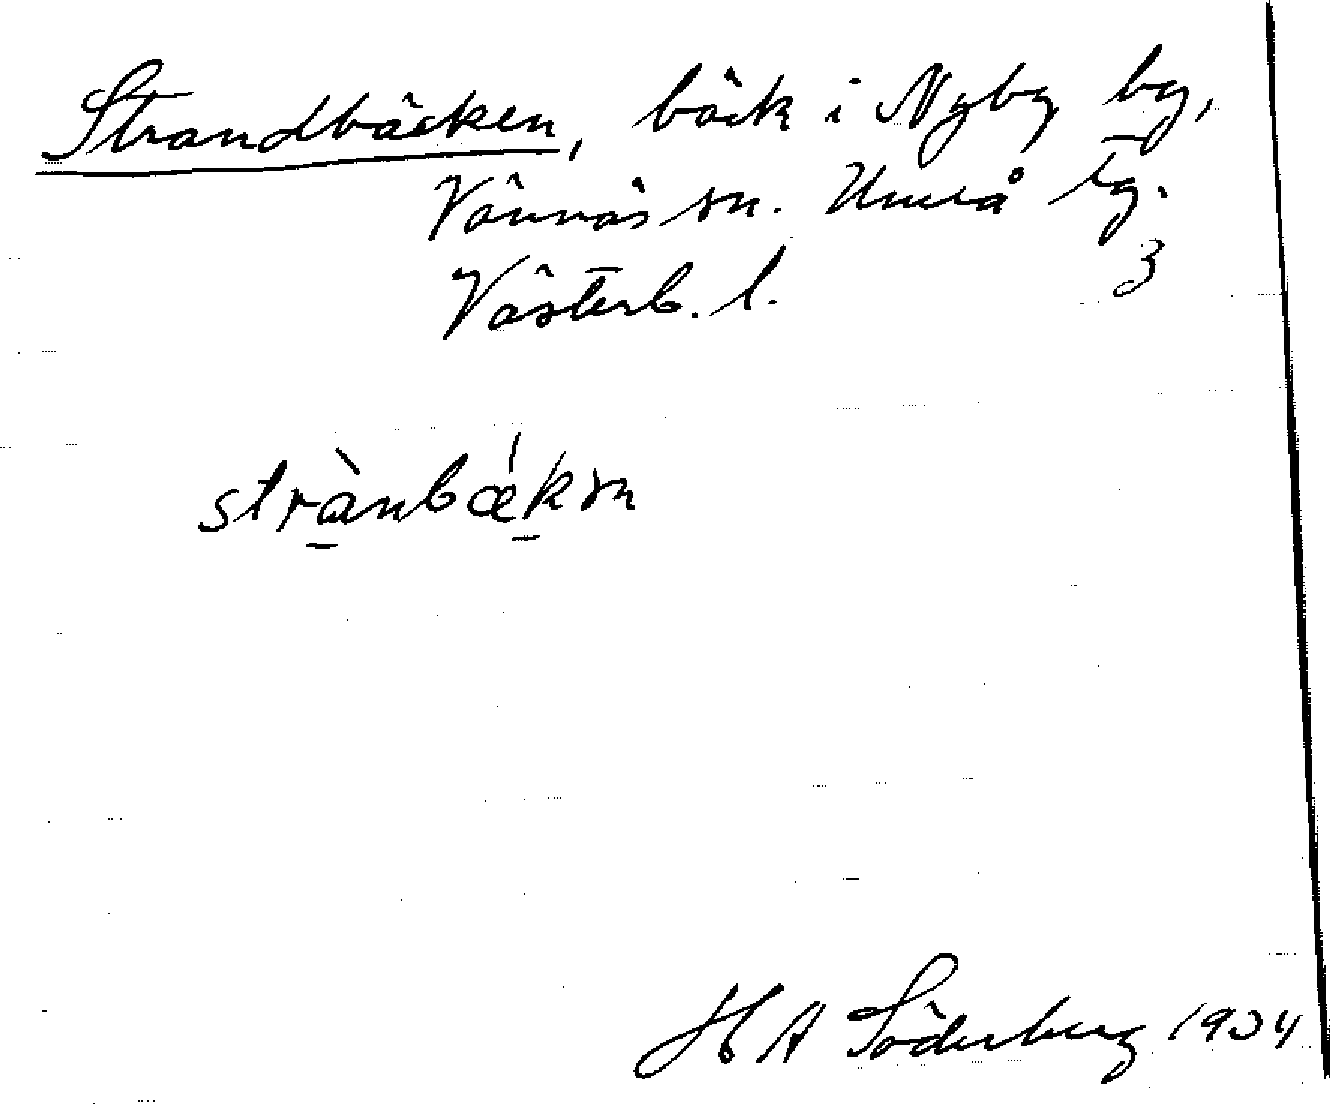 Strandbäcken, bäck i Nyby by,
Vännäs sn. Umeå tg.
Västerb. l. 3
strànbǽkən
H A Söderberg 1934